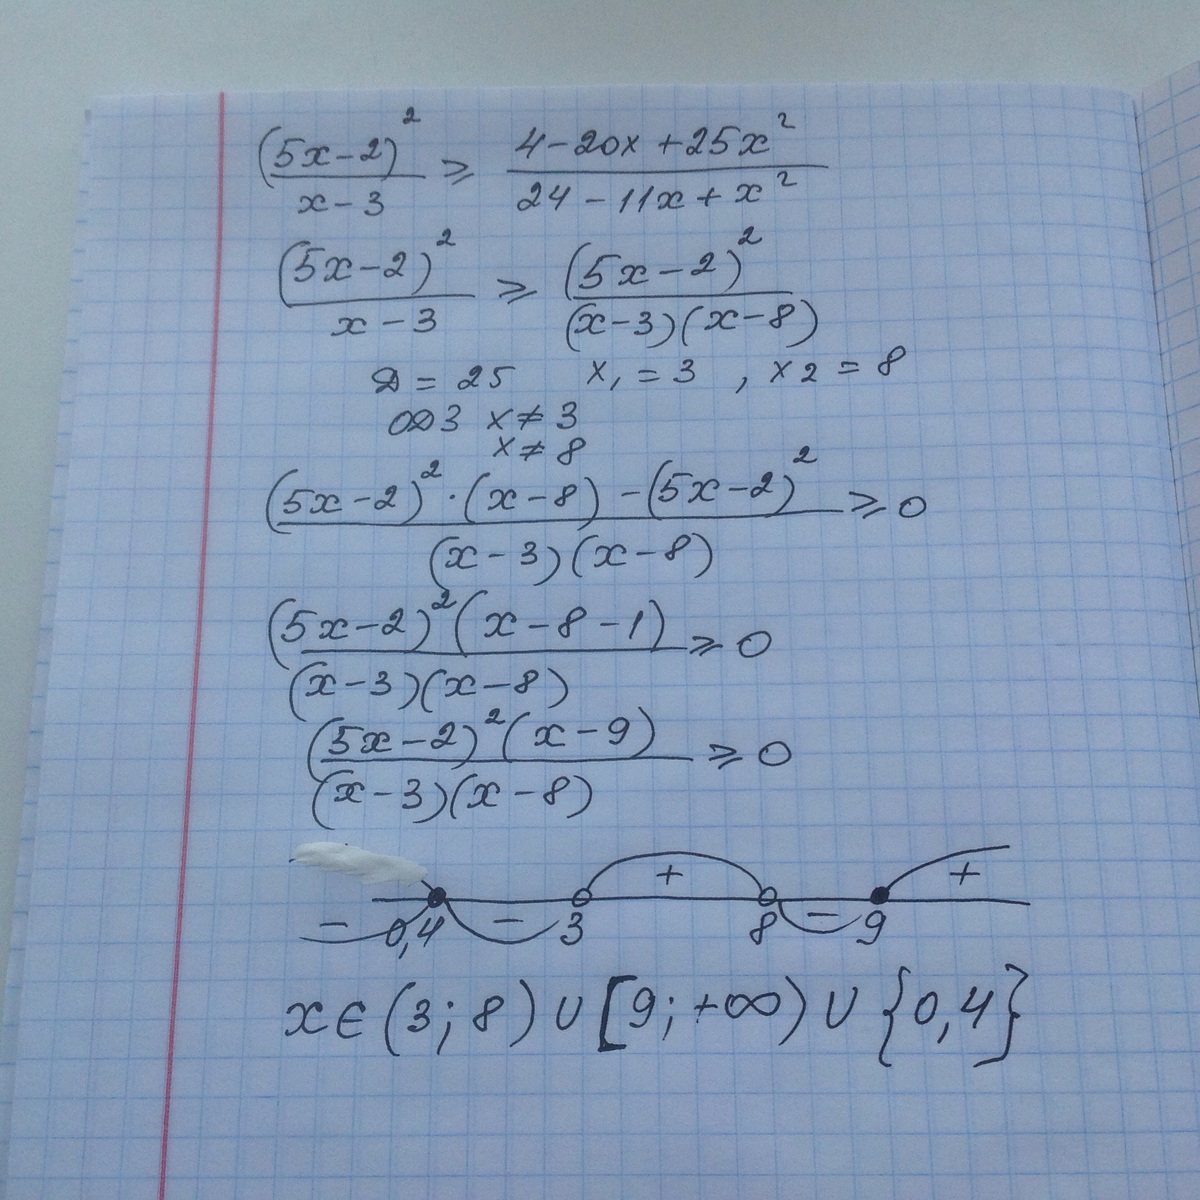 (5x-2)²/(x-3) ≥ (4-20x+25x²)/(24-11x+x²)
(5x-2)²/(x-3) ≥ (5x-2)²/((x-3)(x-8))
Д = 25 x₁ = 3 , x₂ = 8
ОДЗ x ≠ 3
x ≠ 8
((5x-2)²·(x-8) - (5x-2)²)/((x-3)(x-8)) ≥ 0
((5x-2)²(x-8-1))/((x-3)(x-8)) ≥ 0
((5x-2)²(x-9))/((x-3)(x-8)) ≥ 0
- - + - +
0,4 3 8 9
x ∈ (3; 8) ∪ [9; +∞) ∪ {0,4}